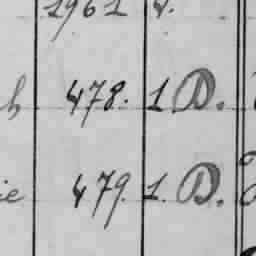 1961 v.
h 478. 1 D.
ie 479. 1. D.